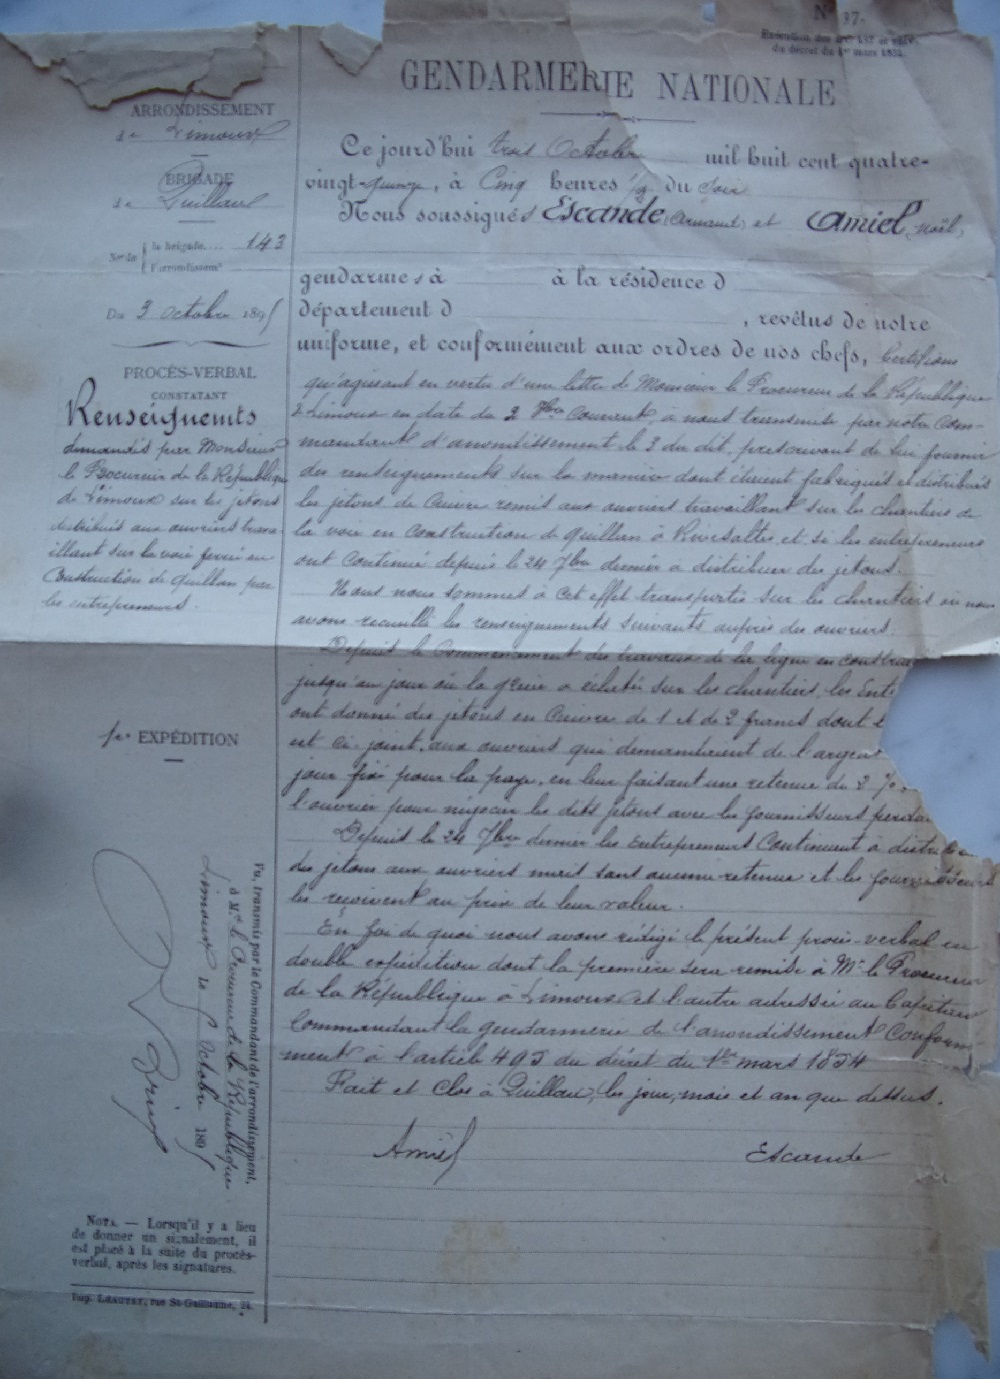 N° 37.
Exécution des art. 487 et suiv.
du décret du 1er mars 1854.
GENDARMERIE NATIONALE
ARRONDISSEMENT
de Limoux
BRIGADE
de Quillan
Nos de la brigade.... 143
l'arrondissemt
Du 3 octobre 1895
PROCÈS-VERBAL
CONSTATANT
Renseignemts
demandés par Monsieur
le Procureur de la République
de Limoux sur les jetons
distribués aux ouvriers trava-
illant sur la voie ferrée en
Construction de Quillan par
les entrepreneurs.
1re EXPÉDITION
Vu, transmis par le Commandant de l'arrondissement,
à Mr le Procureur de la République
Limoux le 5 Octobre 1895
NOTA. — Lorsqu'il y a lieu
de donner un signalement, il
est placé à la suite du procès-
verbal, après les signatures.
Imp. LAHUTTE, rue St-Guillaume, 24.
Ce jourd'hui trois Octobre mil huit cent quatre-
vingt-quinze, à Cinq heures ½ du soir
Nous soussignés Escande (Armand) et Amiel, Noël,
gendarmes à à la résidence d
département d , revêtus de notre
uniforme, et conformément aux ordres de nos chefs, Certifions
qu'agissant en vertu d'une lettre de Monsieur le Procureur de la République
à Limoux en date du 2 8bre Courant, à nous transmise par notre Com-
mandant d'arrondissement le 3 du dit, prescrivant de lui fournir
des renseignements sur la manière dont étaient fabriqués et distribués
les jetons de Cuivre remis aux ouvriers travaillant sur les chantiers de
la voie en construction de Quillan à Rivesaltes et si les entrepreneurs
ont continué depuis le 24 7bre dernier à distribuer des jetons.
Nous nous sommes à cet effet transportés sur les chantiers où nous
avons recueilli les renseignements suivants auprès des ouvriers.
Depuis le Commencement des travaux de la ligne en construc
jusqu'au jour où la grève a éclaté sur les chantiers, les Ent
ont donné des jetons en Cuivre de 1 et de 2 francs dont
est ci-joint, aux ouvriers qui demandaient de l'argen
jour fixé pour la paye, en leur faisant une retenue de 2 %
l'ouvrier pour négocier les dits jetons avec les fournisseurs perda
Depuis le 24 7bre dernier les Entrepreneurs Continuent à distribuer
des jetons aux ouvriers mais sans aucune retenue et les fournisseurs
les reçoivent au prix de leur valeur.
En foi de quoi nous avons rédigé le présent procès-verbal en
double expédition dont la première sera remise à Mr le Procureur
de la République à Limoux et l'autre adressée au Capitaine
Commandant la gendarmerie de l'arrondissement Conformé-
ment à l'article 495 du décret du 1er mars 1854
Fait et Clos à Quillan, les jour, mois et an que dessus.
Amiel Escande